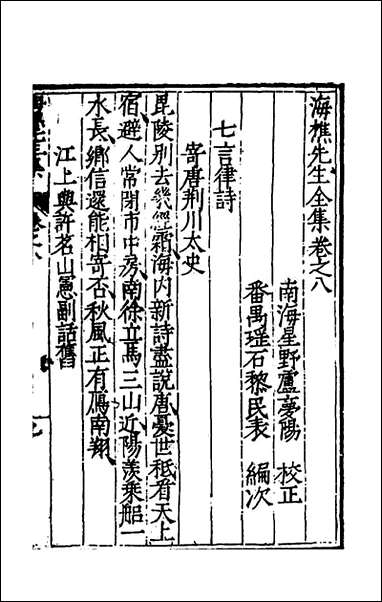 海樵先生全集卷之八
南海星野盧夢陽 校正
番禺瑶石黎民表 編次
七言律詩
寄唐荆川太史
毘陵別去幾經霜海内新詩盡說唐憂世秪看天上
宿避人常閉市中房南徐立馬三山近陽羨乘船一
水長鄉信還能相寄否秋風正有鴈南翔
江上與許茗山憲副話舊